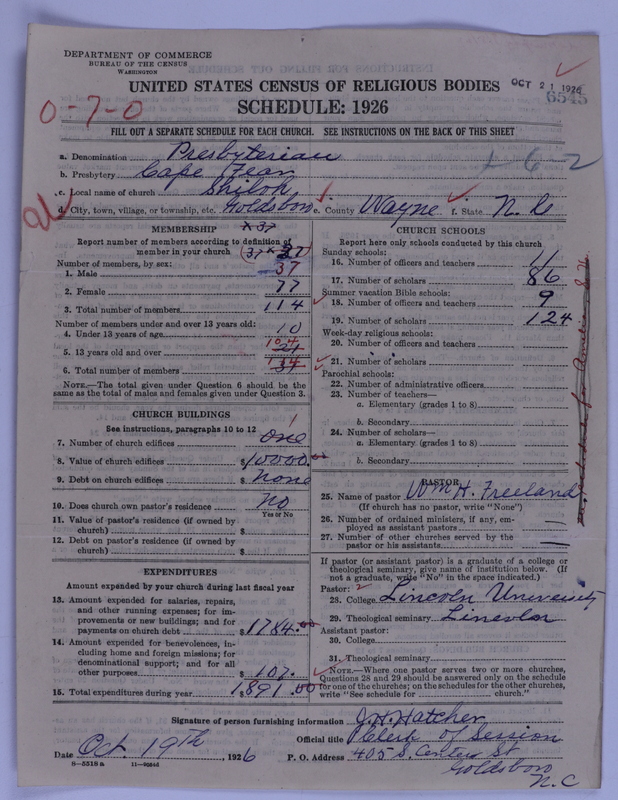 DEPARTMENT OF COMMERCE
BUREAU OF THE CENSUS
WASHINGTON
UNITED STATES CENSUS OF RELIGIOUS BODIES
OCT 21 1926
6545
SCHEDULE: 1926
0-7-0
FILL OUT A SEPARATE SCHEDULE FOR EACH CHURCH. SEE INSTRUCTIONS ON THE BACK OF THIS SHEET
1-6-2
a. Denomination Presbyterian
b. Presbytery Cape Fear
c. Local name of church Shiloh
d. City, town, village, or township, etc. Goldsboro e. County Wayne f. State N. C.
MEMBERSHIP
Report number of members according to definition of member in your church
37
Number of members, by sex:
1. Male 37
2. Female 77
3. Total number of members 114
Number of members under and over 13 years old:
4. Under 13 years of age 10
5. 13 years old and over 104
6. Total number of members 114
NOTE.—The total given under Question 6 should be the same as the total of males and females given under Question 3.
CHURCH BUILDINGS
See instructions, paragraphs 10 to 12
1
7. Number of church edifices one
8. Value of church edifices $10000.00
9. Debt on church edifices $none
10. Does church own pastor's residence no
Yes or No
11. Value of pastor's residence (if owned by church) $
12. Debt on pastor's residence (if owned by church) $
EXPENDITURES
Amount expended by your church during last fiscal year
13. Amount expended for salaries, repairs, and other running expenses; for improvements or new buildings; and for payments on church debt $1784.00
14. Amount expended for benevolences, including home and foreign missions; for denominational support; and for all other purposes $107.
15. Total expenditures during year 1,891.00
CHURCH SCHOOLS
Report here only schools conducted by this church
Sunday schools:
16. Number of officers and teachers 11
17. Number of scholars 86
Summer vacation Bible schools:
18. Number of officers and teachers 9
19. Number of scholars 124
Week-day religious schools:
20. Number of officers and teachers
21. Number of scholars
Parochial schools:
22. Number of administrative officers
23. Number of teachers—
a. Elementary (grades 1 to 8)
b. Secondary
24. Number of scholars—
a. Elementary (grades 1 to 8)
b. Secondary
PASTOR
25. Name of pastor Wm H. Freeland
(If church has no pastor, write "None")
26. Number of ordained ministers, if any, employed as assistant pastors —
27. Number of other churches served by the pastor or his assistants —
If pastor (or assistant pastor) is a graduate of a college or theological seminary, give name of institution below. (If not a graduate, write "No" in the space indicated.)
Pastor: 2
28. College Lincoln University
29. Theological seminary Lincoln
Assistant pastor:
30. College
31. Theological seminary
NOTE.—Where one pastor serves two or more churches, Questions 28 and 29 should be answered only on the schedule for one of the churches; on the schedules for the other churches, write "See schedule for church."
Signature of person furnishing information J. H. Hatcher
Official title Clerk of Session
Date Oct. 19th, 1926 P. O. Address 405 S. Center St
Goldsboro
N. C
8-5318a 11-9664d